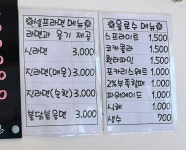 ※셀프라면 메뉴※
라면과 용기 제공
신라면 3,000
진라면(매운) 3,000
진라면(순한) 3,000
불닭볶음면 3,000
※음료수 메뉴※
스프라이트 1,500
코카콜라 1,500
환타파인 1,500
포카리스웨트 1,500
2%부족할때 1,500
파워에이드 1,500
식혜 1,000
생수 700